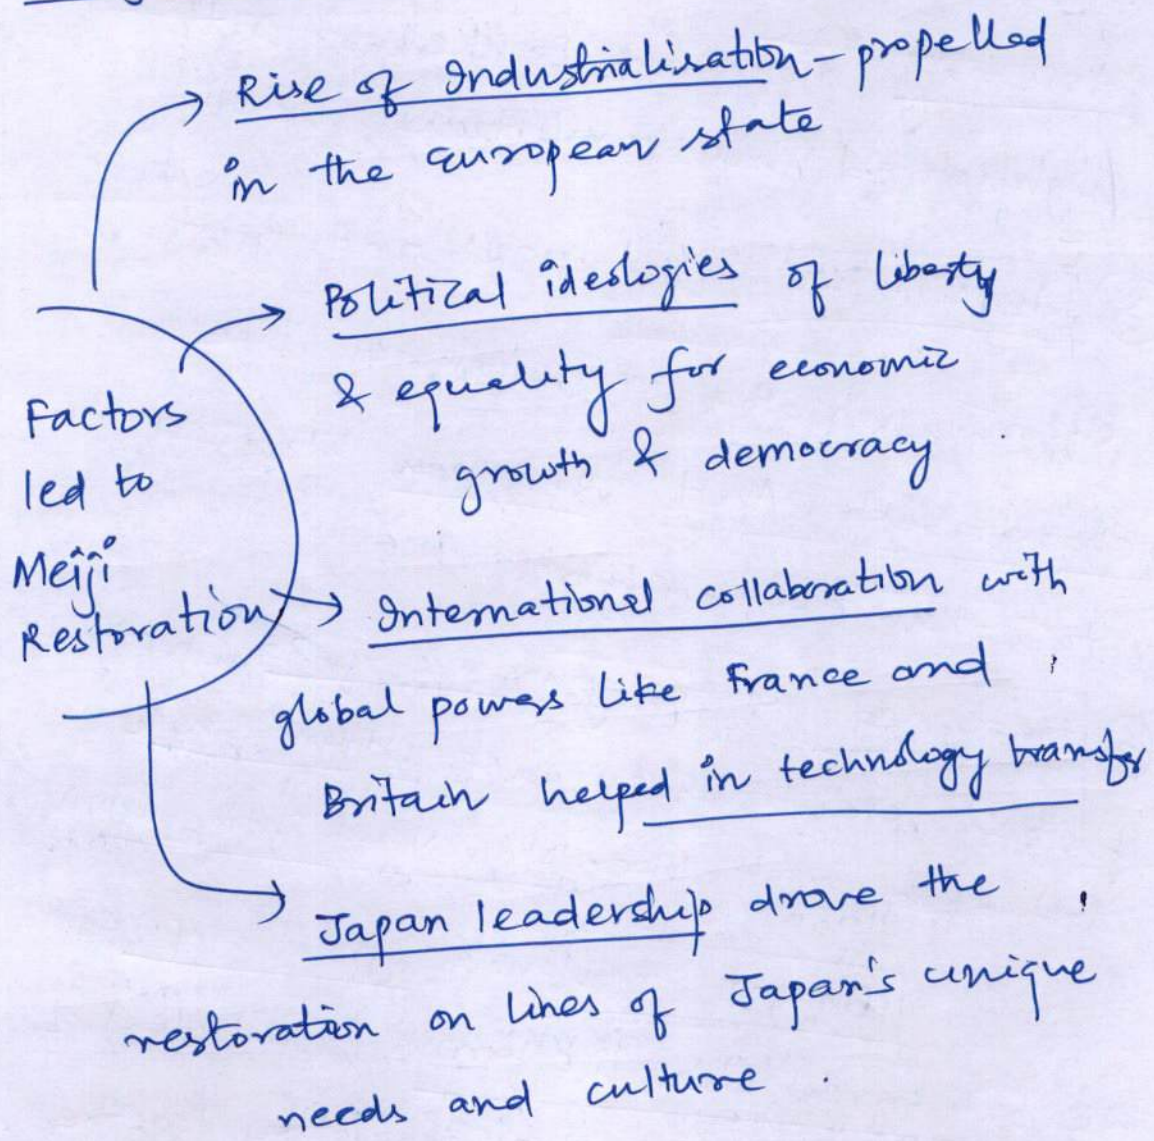 Rise of Industrialisation - propelled
in the European state
Political ideologies of liberty
& equality for economic
growth & democracy
Factors
led to
Meiji
Restoration
International collaboration with
global powers like France and
Britain helped in technology transfer
Japan leadership drove the
restoration on lines of Japan's unique
needs and culture.